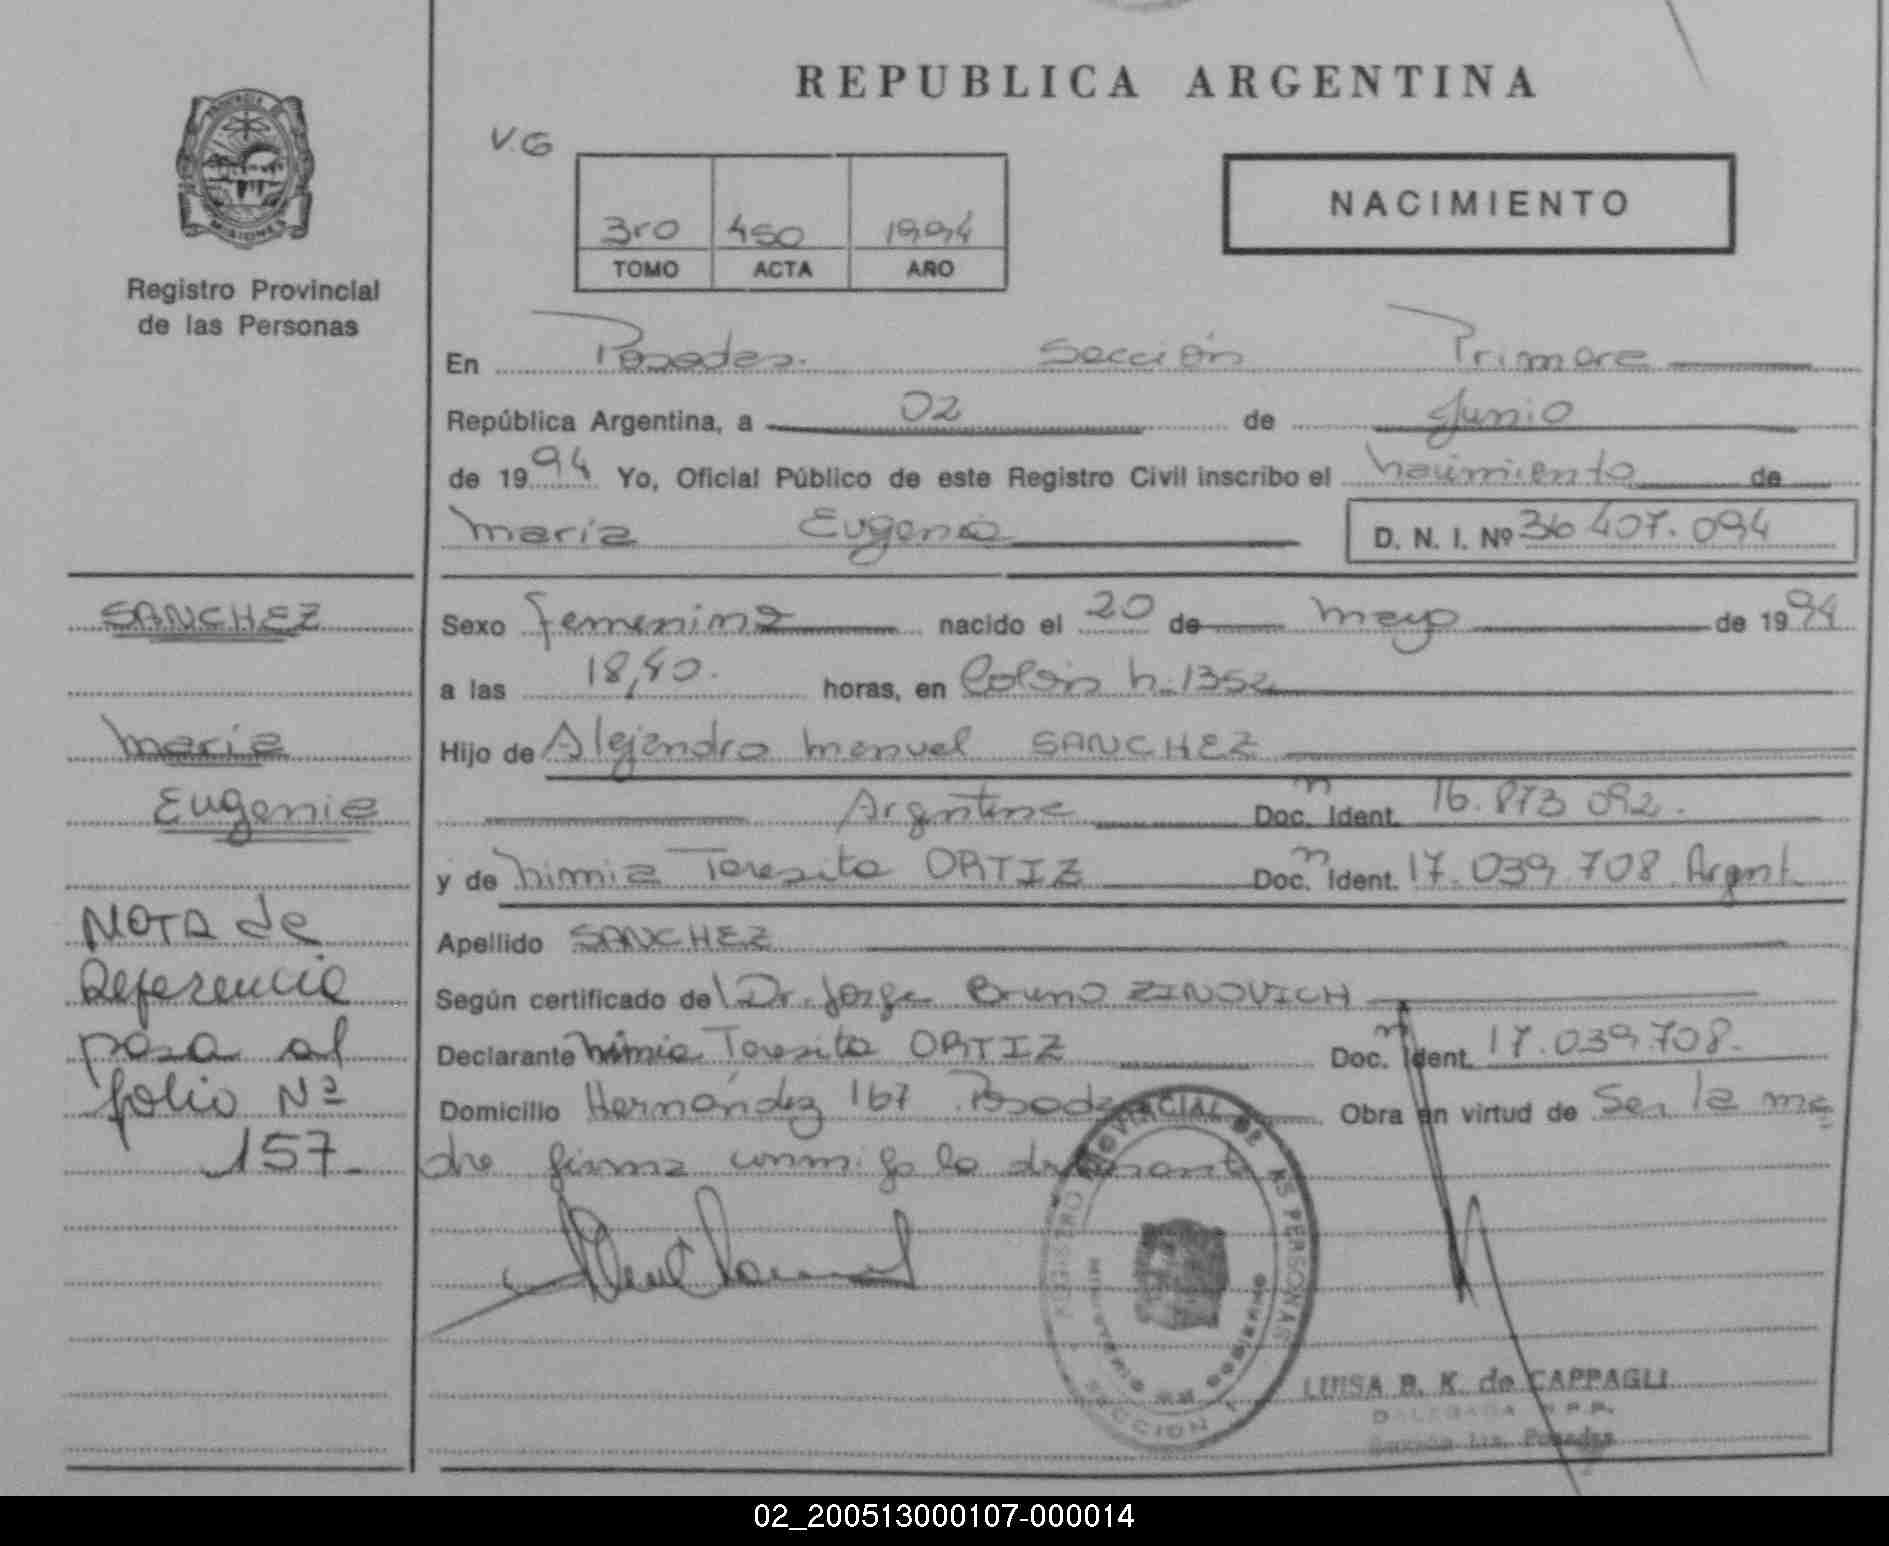 REPUBLICA ARGENTINA
V.G
3ro 450 1994
TOMO ACTA AÑO
NACIMIENTO
PROVINCIA
MISIONES
Registro Provincial
de las Personas
En Posadas. Sección Primera
República Argentina, a 02 de Junio
de 1994 Yo, Oficial Público de este Registro Civil inscribo el nacimiento de
María Eugenia D. N. I. Nº 36 407.094
SANCHEZ
María
Eugenia
NOTA de
Referencia
pasa al
folio Nº
157.
Sexo femenino nacido el 20 de mayo de 1994
a las 18,40. horas, en Colón n. 1352
Hijo de Alejandro Manuel SANCHEZ
Argentino Doc. Ident. 16.873 092.
y de Nimia Teresita ORTIZ Doc. Ident. 17.039.708 Argent.
Apellido SANCHEZ
Según certificado de Dr. Jorge Bruno ZINOVICH
Declarante Nimia Teresita ORTIZ Doc. Ident. 17.039.708.
Domicilio Hernández 167 Posadas Obra en virtud de Ser la ma
dre firma conmigo la declarante
REGISTRO PROVINCIAL DE LAS PERSONAS
MINISTERIO DE GOBIERNO
SECCION 1
LUISA B. K. de CAPPAGLI
DELEGADA R.P.P.
Sección 1ra. Posadas
02_200513000107-000014